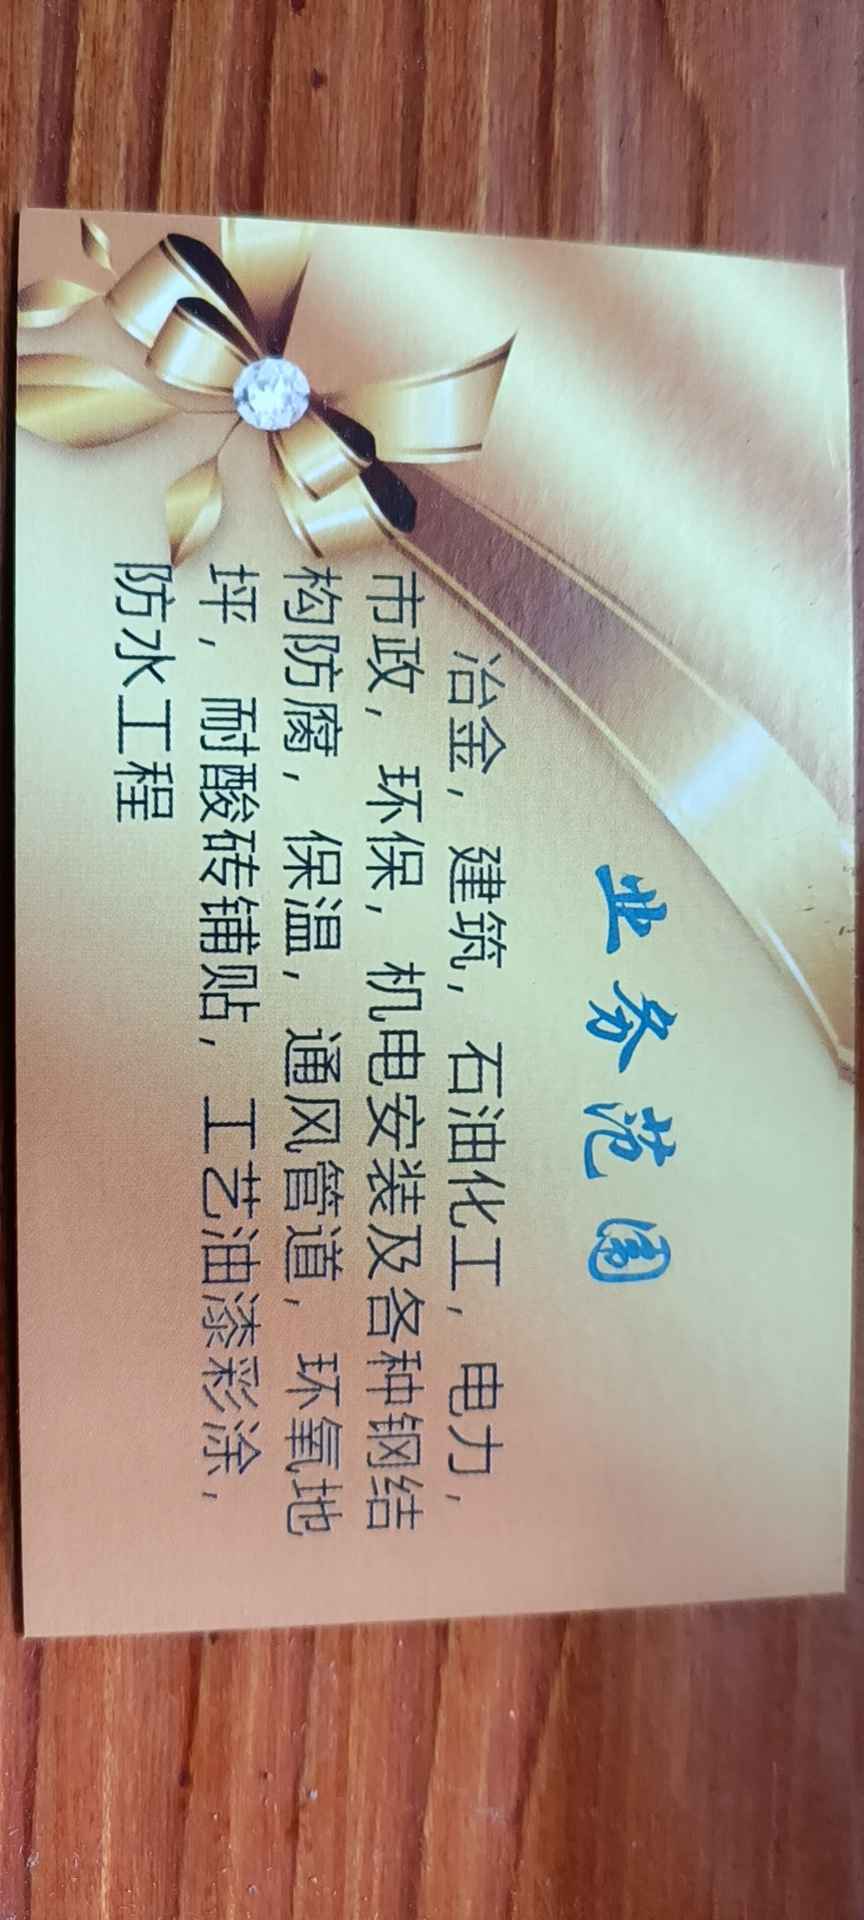 业务范围
冶金，建筑，石油化工，电力，
市政，环保，机电安装及各种钢结
构防腐，保温，通风管道，环氧地
坪，耐酸砖铺贴，工艺油漆彩涂，
防水工程